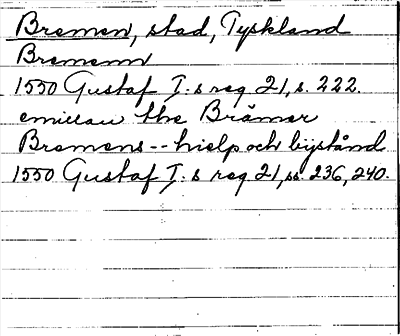 Bremen, stad, Tyskland
Bremenn
1550 Gustaf I.s reg 21, s. 222.
emillau the Brämer
Bremens -- hielp och bijstånd
1550 Gustaf I.s reg 21, ss. 236, 240.